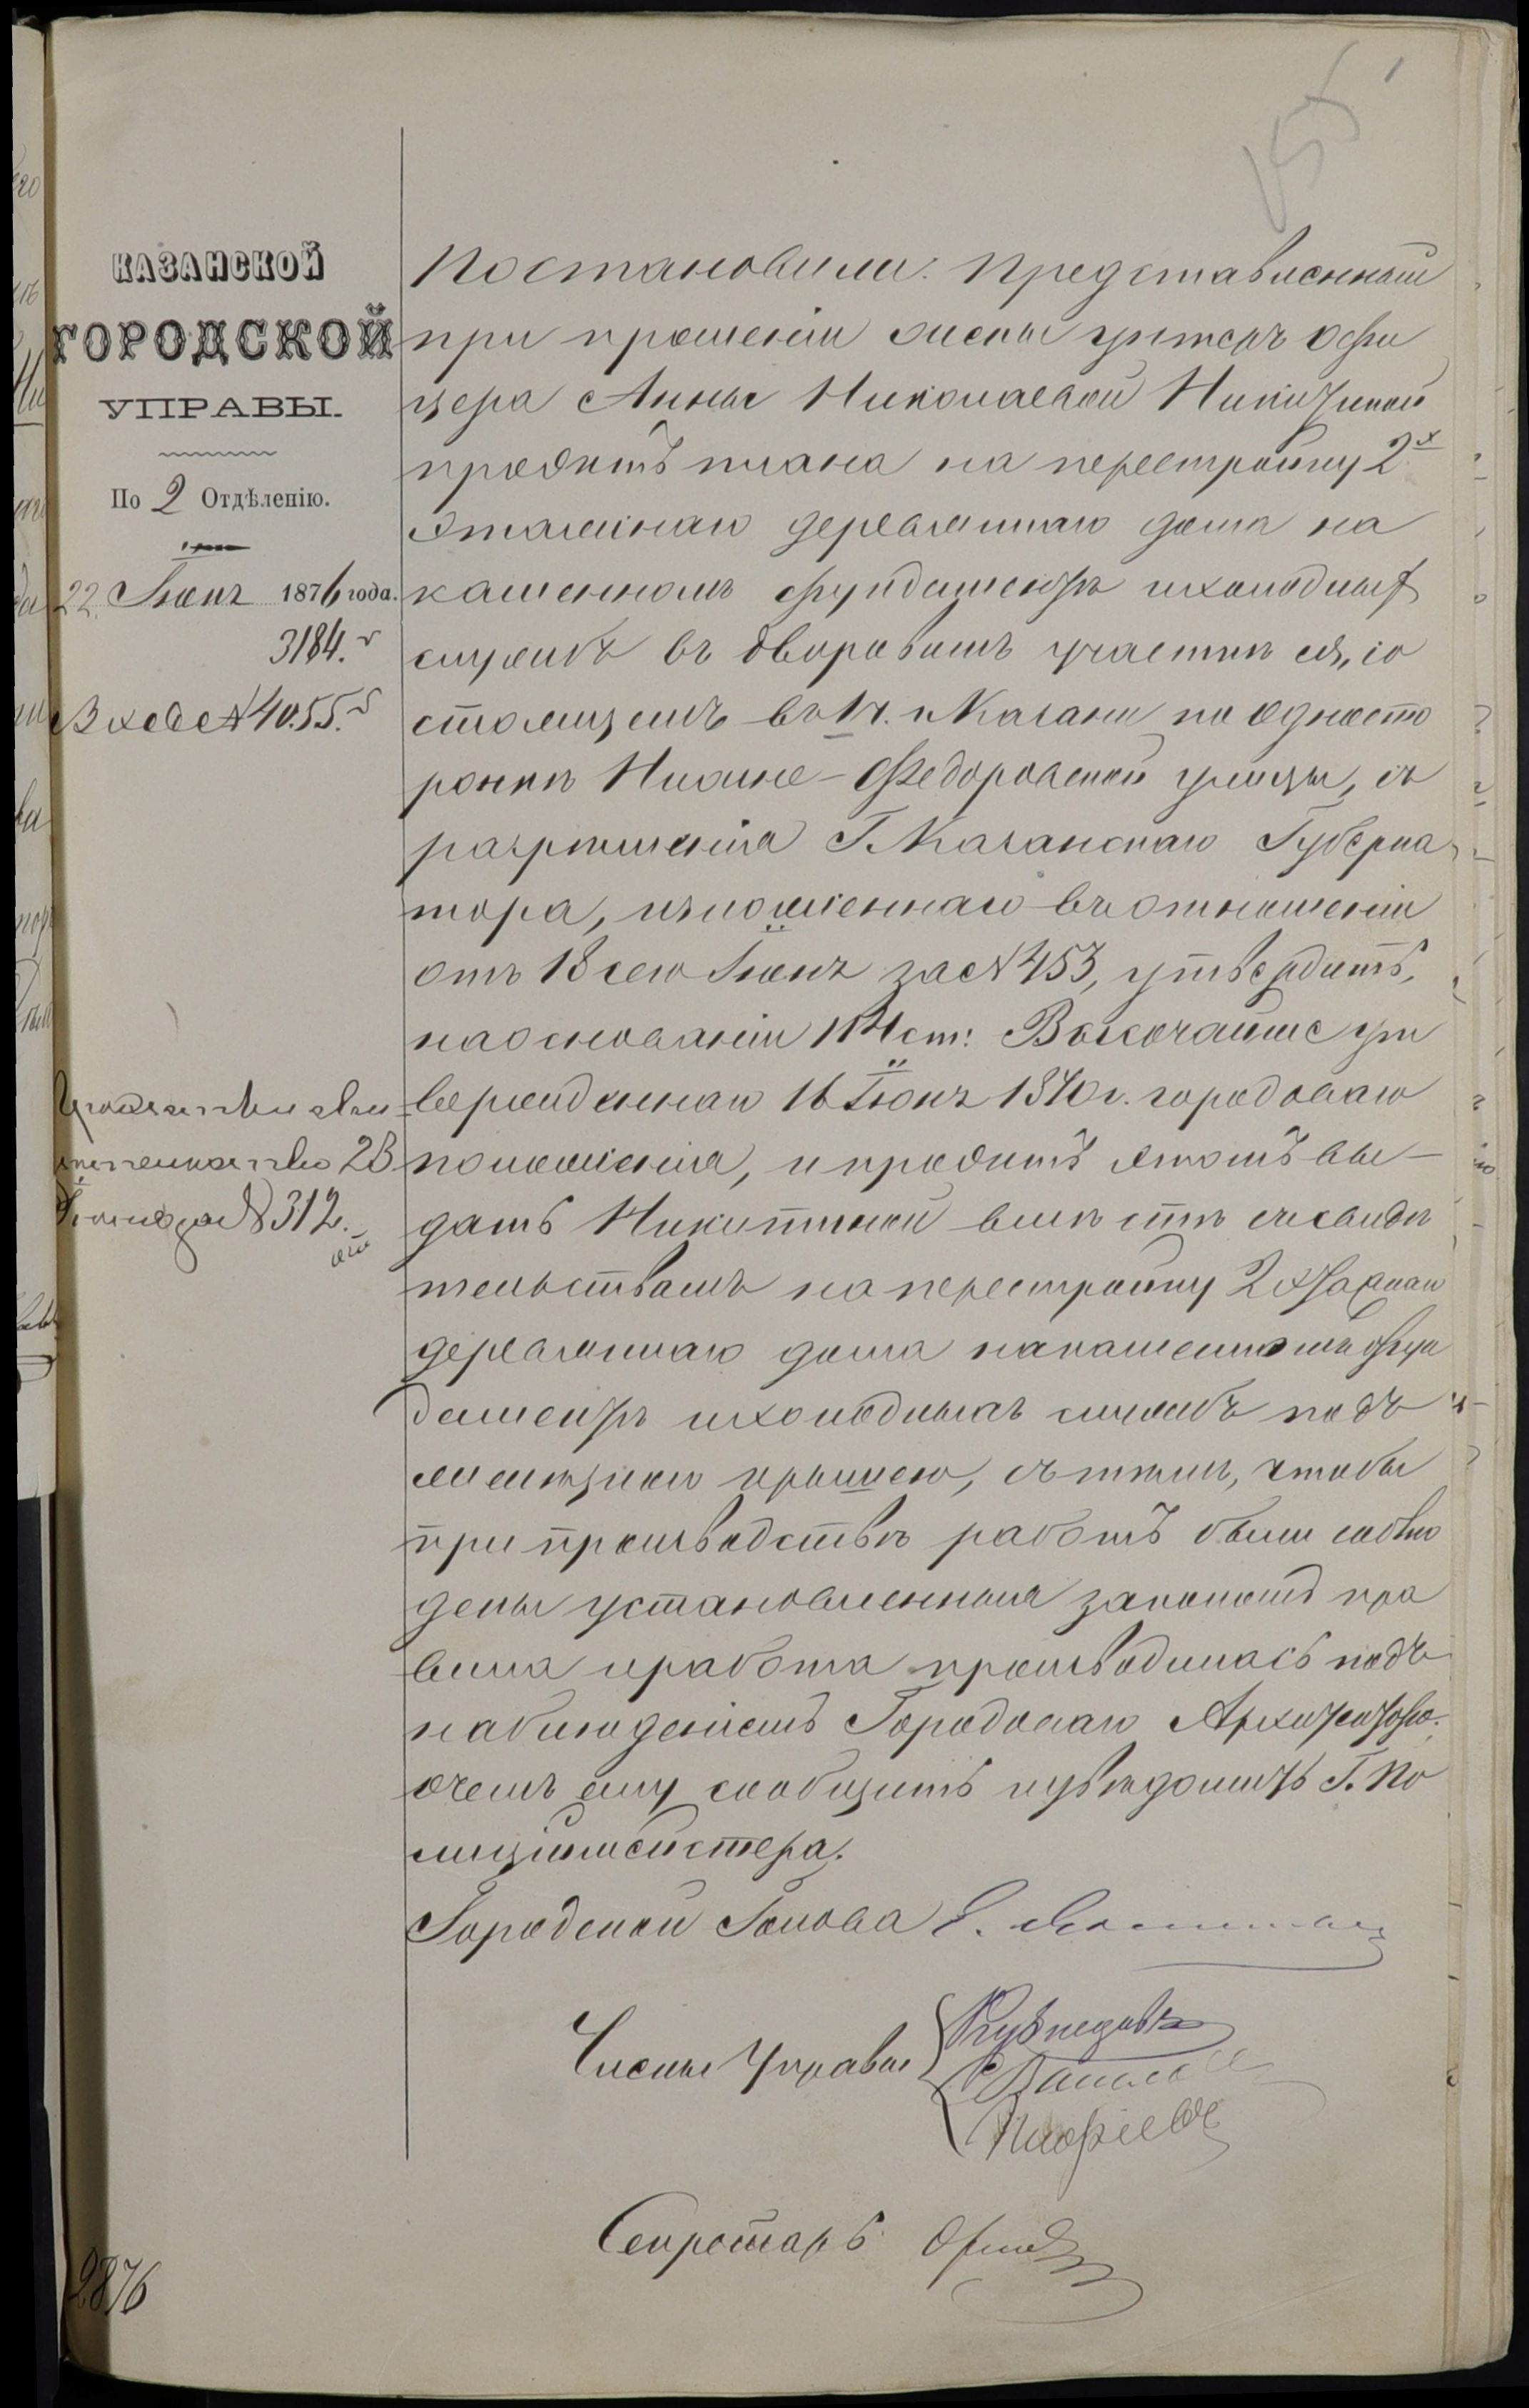 КАЗАНСКОЙ
ГОРОДСКОЙ
УПРАВЫ.
По 2 Отдѣленію.
22 Іюня 1876 года.
3184.
Вход № 4055.
Постановили: Представленный
при прошеніи жены унтеръ офи
цера Анны Николаевой Никитиной
проэктъ плана на перестройку 2х
этажнаго деревяннаго дома на
каменномъ фундаментѣ и холодныхъ
службъ въ дворовомъ участкѣ ея, со
стоящемъ въ 1 ч. г. Казани по одной сто
ронѣ Нижне-Федоровской улицы, съ
разрѣшенія Г. Казанскаго Губерна
тора, изложеннаго въ отношеніи
отъ 18 сего Іюня за № 453, утвердить,
на основаніи 114 ст: Высочайше ут
вержденнаго 16 Іюня 1870 г. городоваго
положенія, и проэктъ этотъ вы-
дать Никитиной вмѣстѣ съ свидѣ
тельствомъ на перестройку 2 хэтажнаго
деревяннаго дома на каменномъ фун
даментѣ и холодныхъ службъ подъ
крышею, съ тѣмъ, чтобы
при производствѣ работъ были соблю
дены установленныя закономъ пра
вила и работа производилась подъ
наблюденіемъ Городоваго Архитектора,
о чемъ ему сообщить и увѣдомить Г. По
лиціймейстера.
свидѣтельство 23
Іюня за № 312.
Городской Голова
Члены Управы
Кузнецовъ
Секретарь
2876